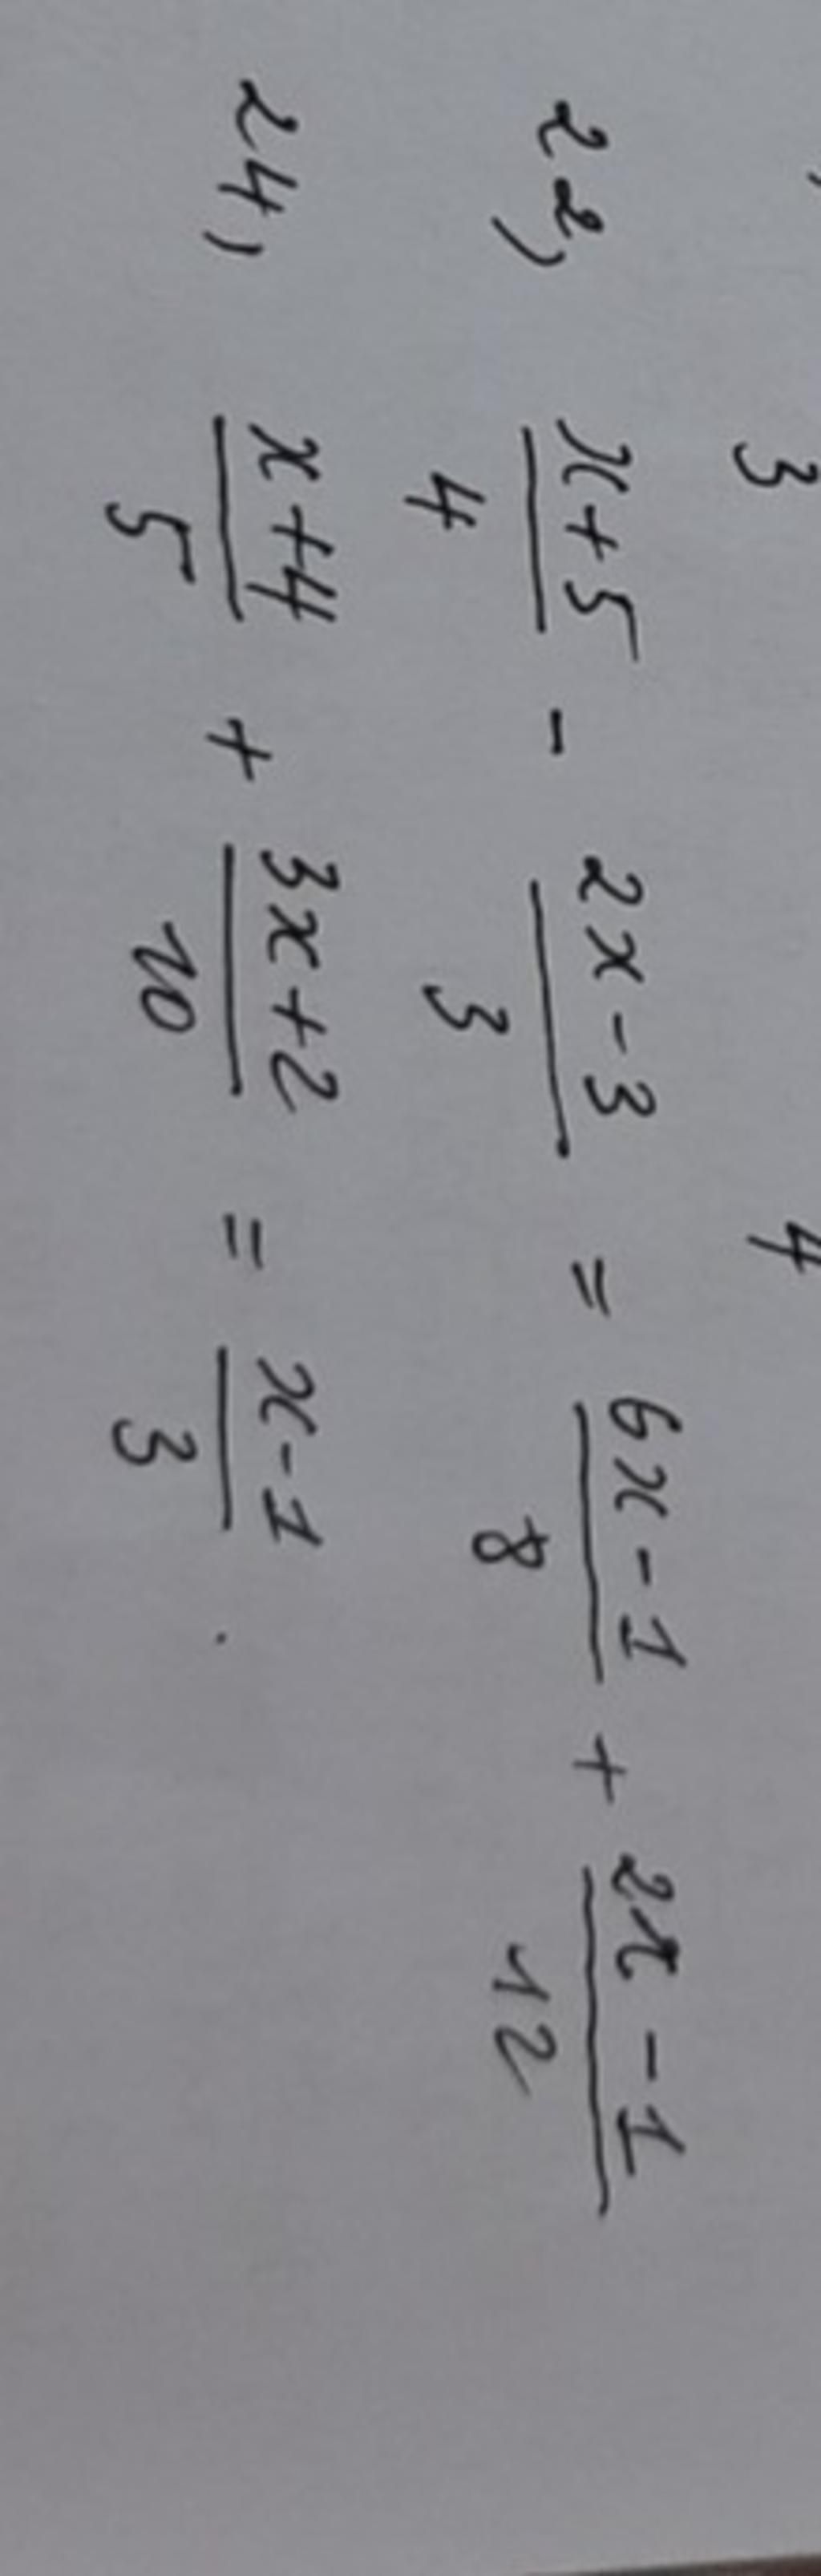 3 4
22) x+5/4 - 2x-3/3 = 6x-1/8 + 2x-1/12
24) x+4/5 + 3x+2/10 = x-1/3